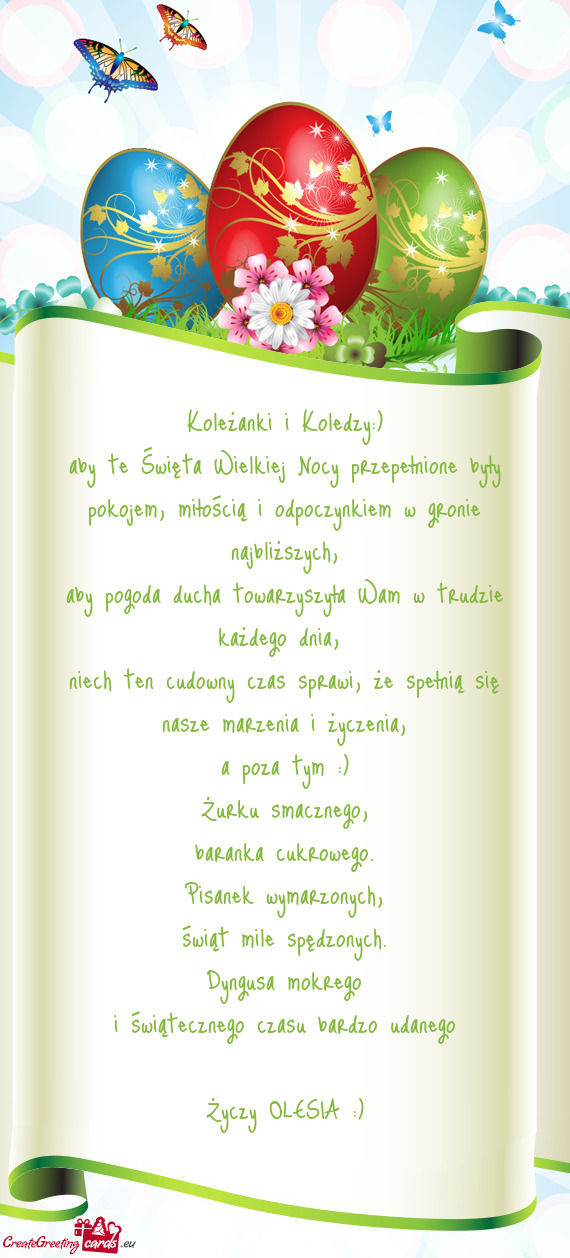 Koleżanki i Koledzy:)
aby te Święta Wielkiej Nocy przepełnione były
pokojem, miłością i odpoczynkiem w gronie
najbliższych,
aby pogoda ducha towarzyszyła Wam w trudzie
każdego dnia,
niech ten cudowny czas sprawi, że spełnią się
nasze marzenia i życzenia,
a poza tym :)
Żurku smacznego,
baranka cukrowego.
Pisanek wymarzonych,
świąt mile spędzonych.
Dyngusa mokrego
i świątecznego czasu bardzo udanego
Życzy OLESIA :)
CreateGreeting cards .eu